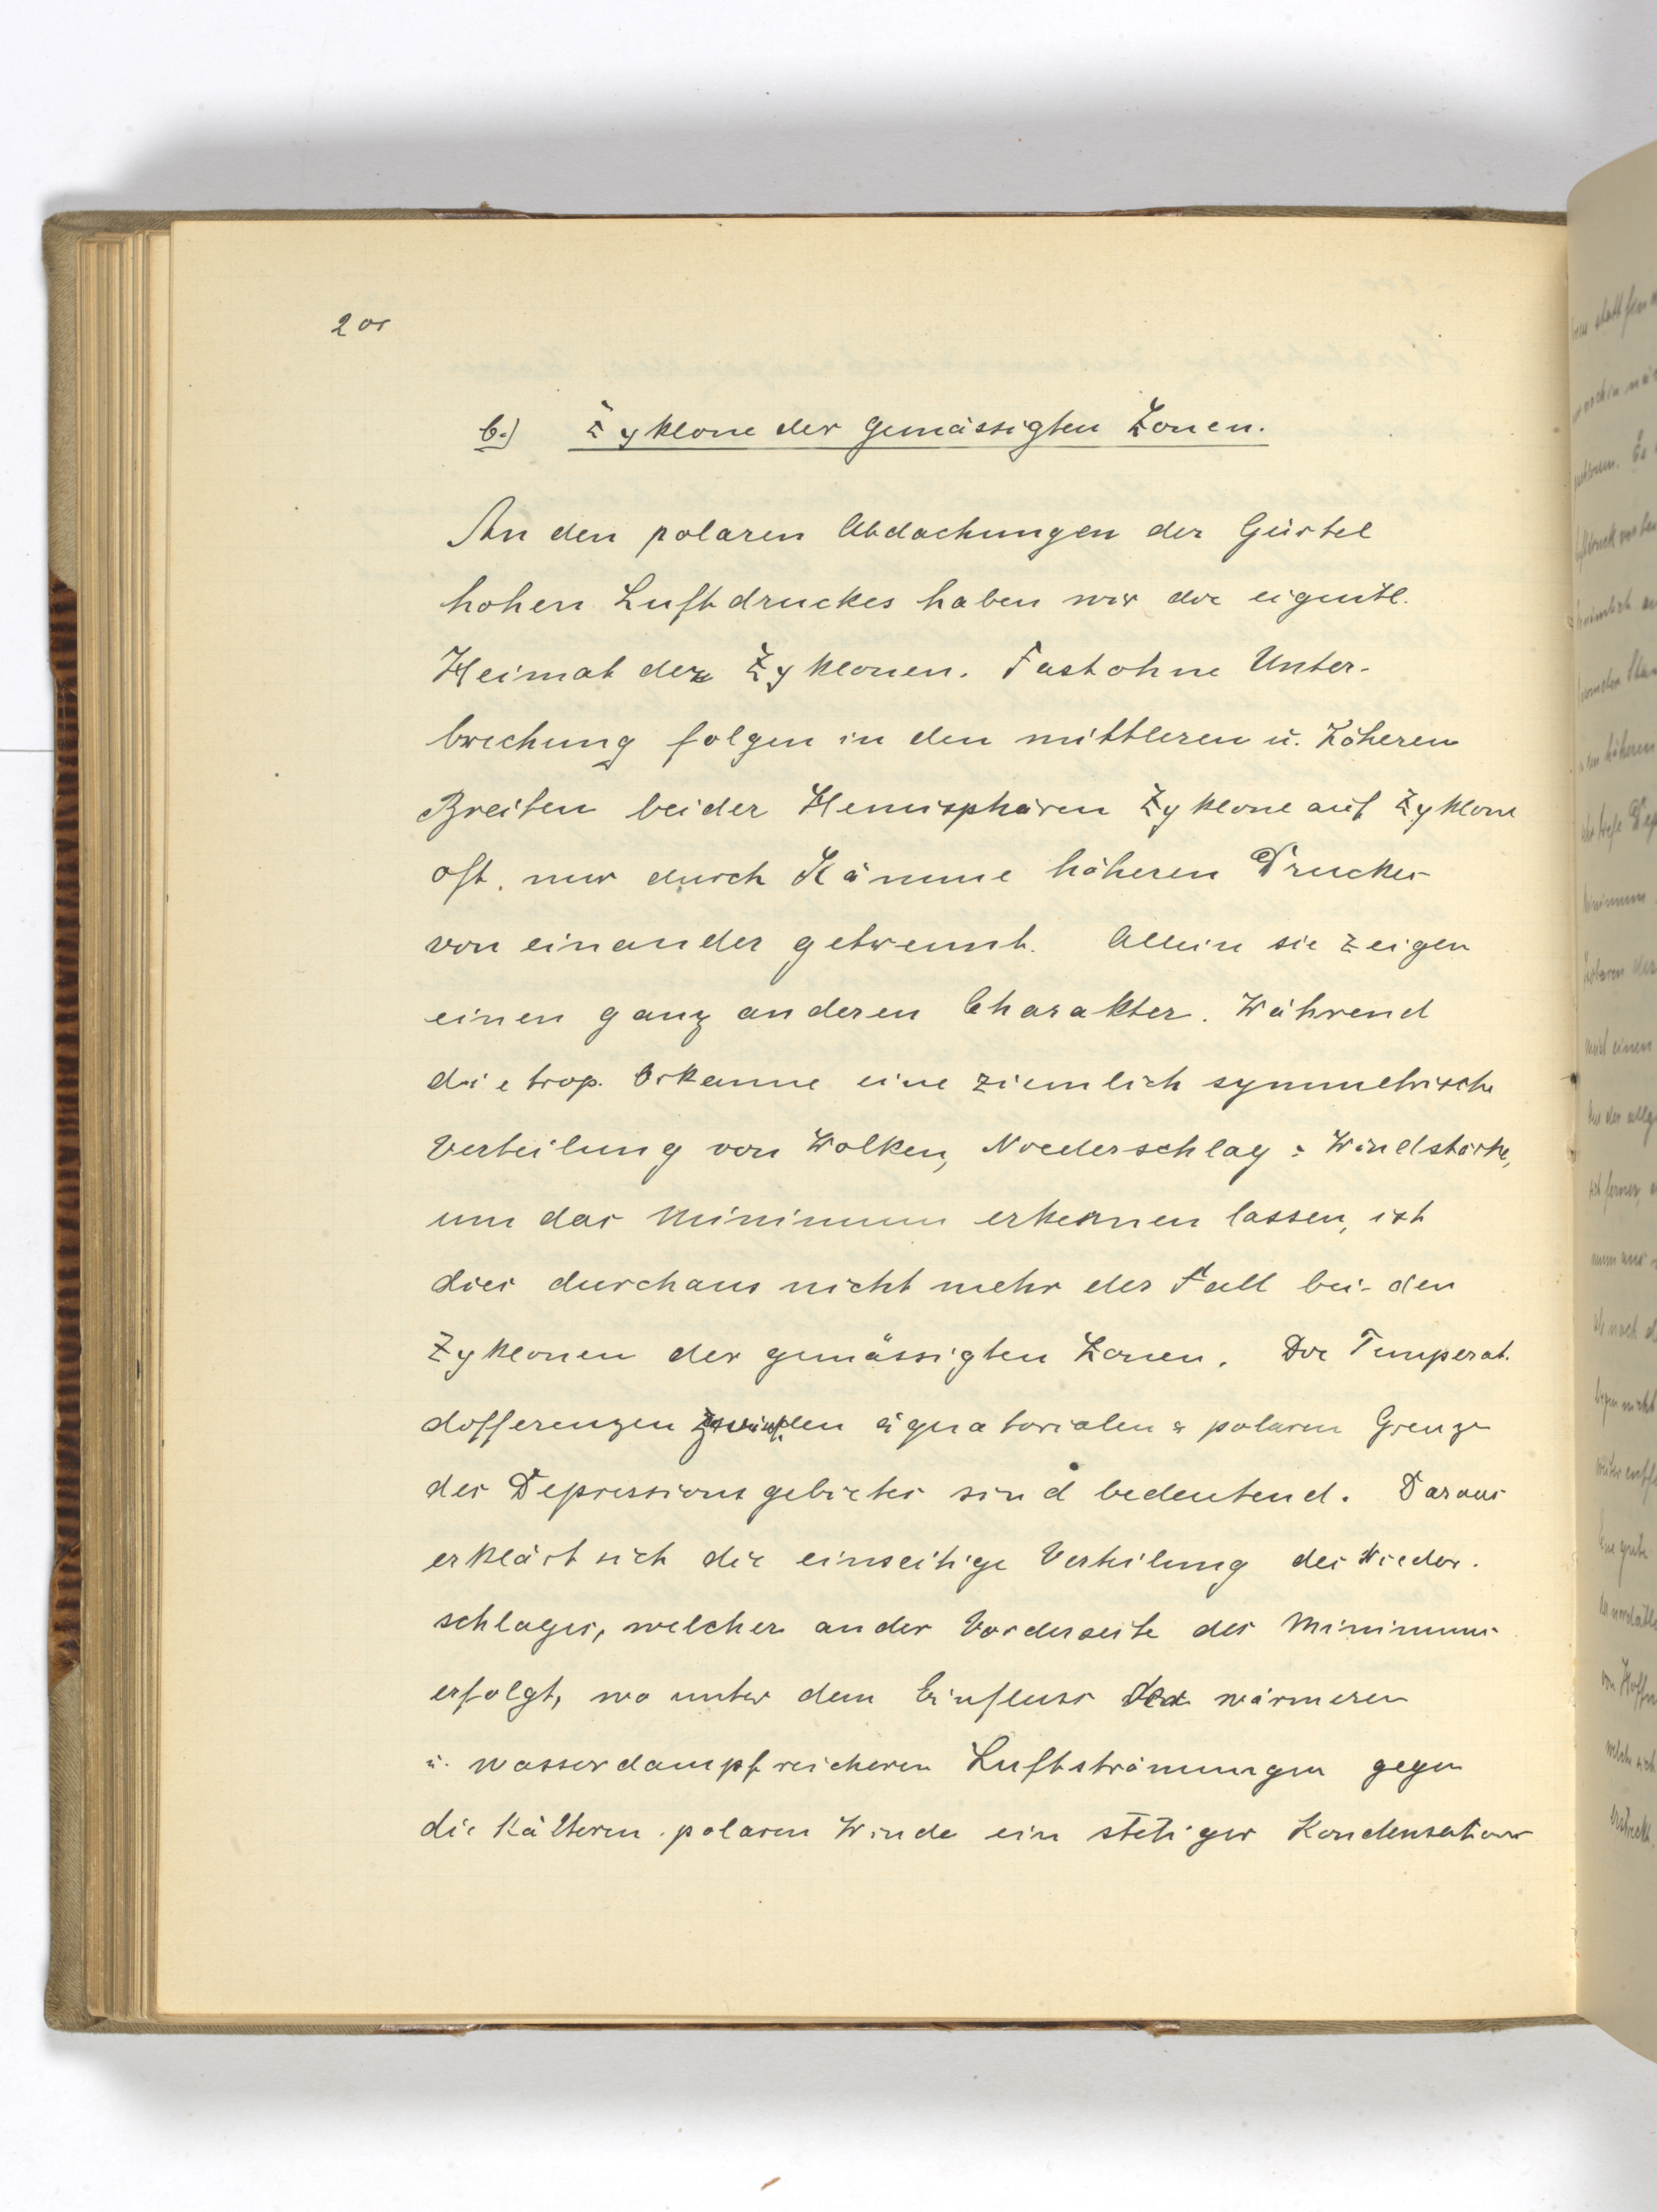 b.) Zyklone der gemässigten Zonen.
An den polaren Abdachungen der Gürtel
hohen Luftdruckes haben wir die eigentl.
Heimat der Zyklonen. Fast ohne Unter-
brechung folgen in den mittleren u. höheren
Breiten beider Hemisphären Zyklone auf Zyklone
oft nur durch Kämme höheren Druckes
von einander getrennt. Allein sie zeigen
einen ganz anderen Charakter. Während
die trop. Orkanne eine ziemlich symmetrische
Verteilung von Wolken, Niederschlag & Windstärke,
um das Minimum erkennen lassen, ist
dies durchaus nicht mehr der Fall bei den
Zyklonen der gemässigten Zonen. Die Temperat.
differenzen zwisch. den äquatorialen & polaren Grenze
des Depressionsgebietes sind bedeutend. Daraus
erklärt sich die einseitige Verteilung des Nieder-
schlages, welcher an der Vorderseite des Minimums
erfolgt, wo unter dem Einfluss der wärmeren
u. wasserdampfreicheren Luftströmungen gegen
die kälteren polaren Winde ein stetiger Kondensations